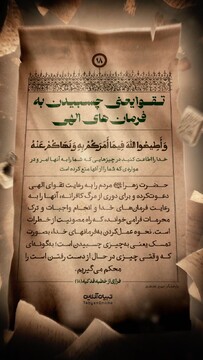 ۱۸
تقوا یعنی چسبیدن به
فرمان های الهی
وَ أَطیعُوا اللهَ فیمَا أَمَرَكُمْ بِهِ وَ نَهَاكُمْ عَنْهُ
خدا را اطاعت کنید در چیزهایی که شما را به آنها امر و در
مواردی که شما را از آنها منع کرده است
حضرت زهرا مردم را به رعایت تقوای الهی
دعوت کرده و برای دوری از مرگ کافرانه، آنها را به
رعایت فرمان‌های خدا و انجام واجبات و ترک
محرمات فرامی‌خواندکه راه مصونیت از خطرات
است. نحوه عمل کردن به فرمانهای خدا، بصورت
تمسک یعنی به چیزی چسبیدن است؛ به گونه‌ای
که وقتی چیزی در حال از دست رفتن است را
محکم می‌گیریم.
فرازی از خطبه فدکیه(۱۰)
تبیان آنلاین